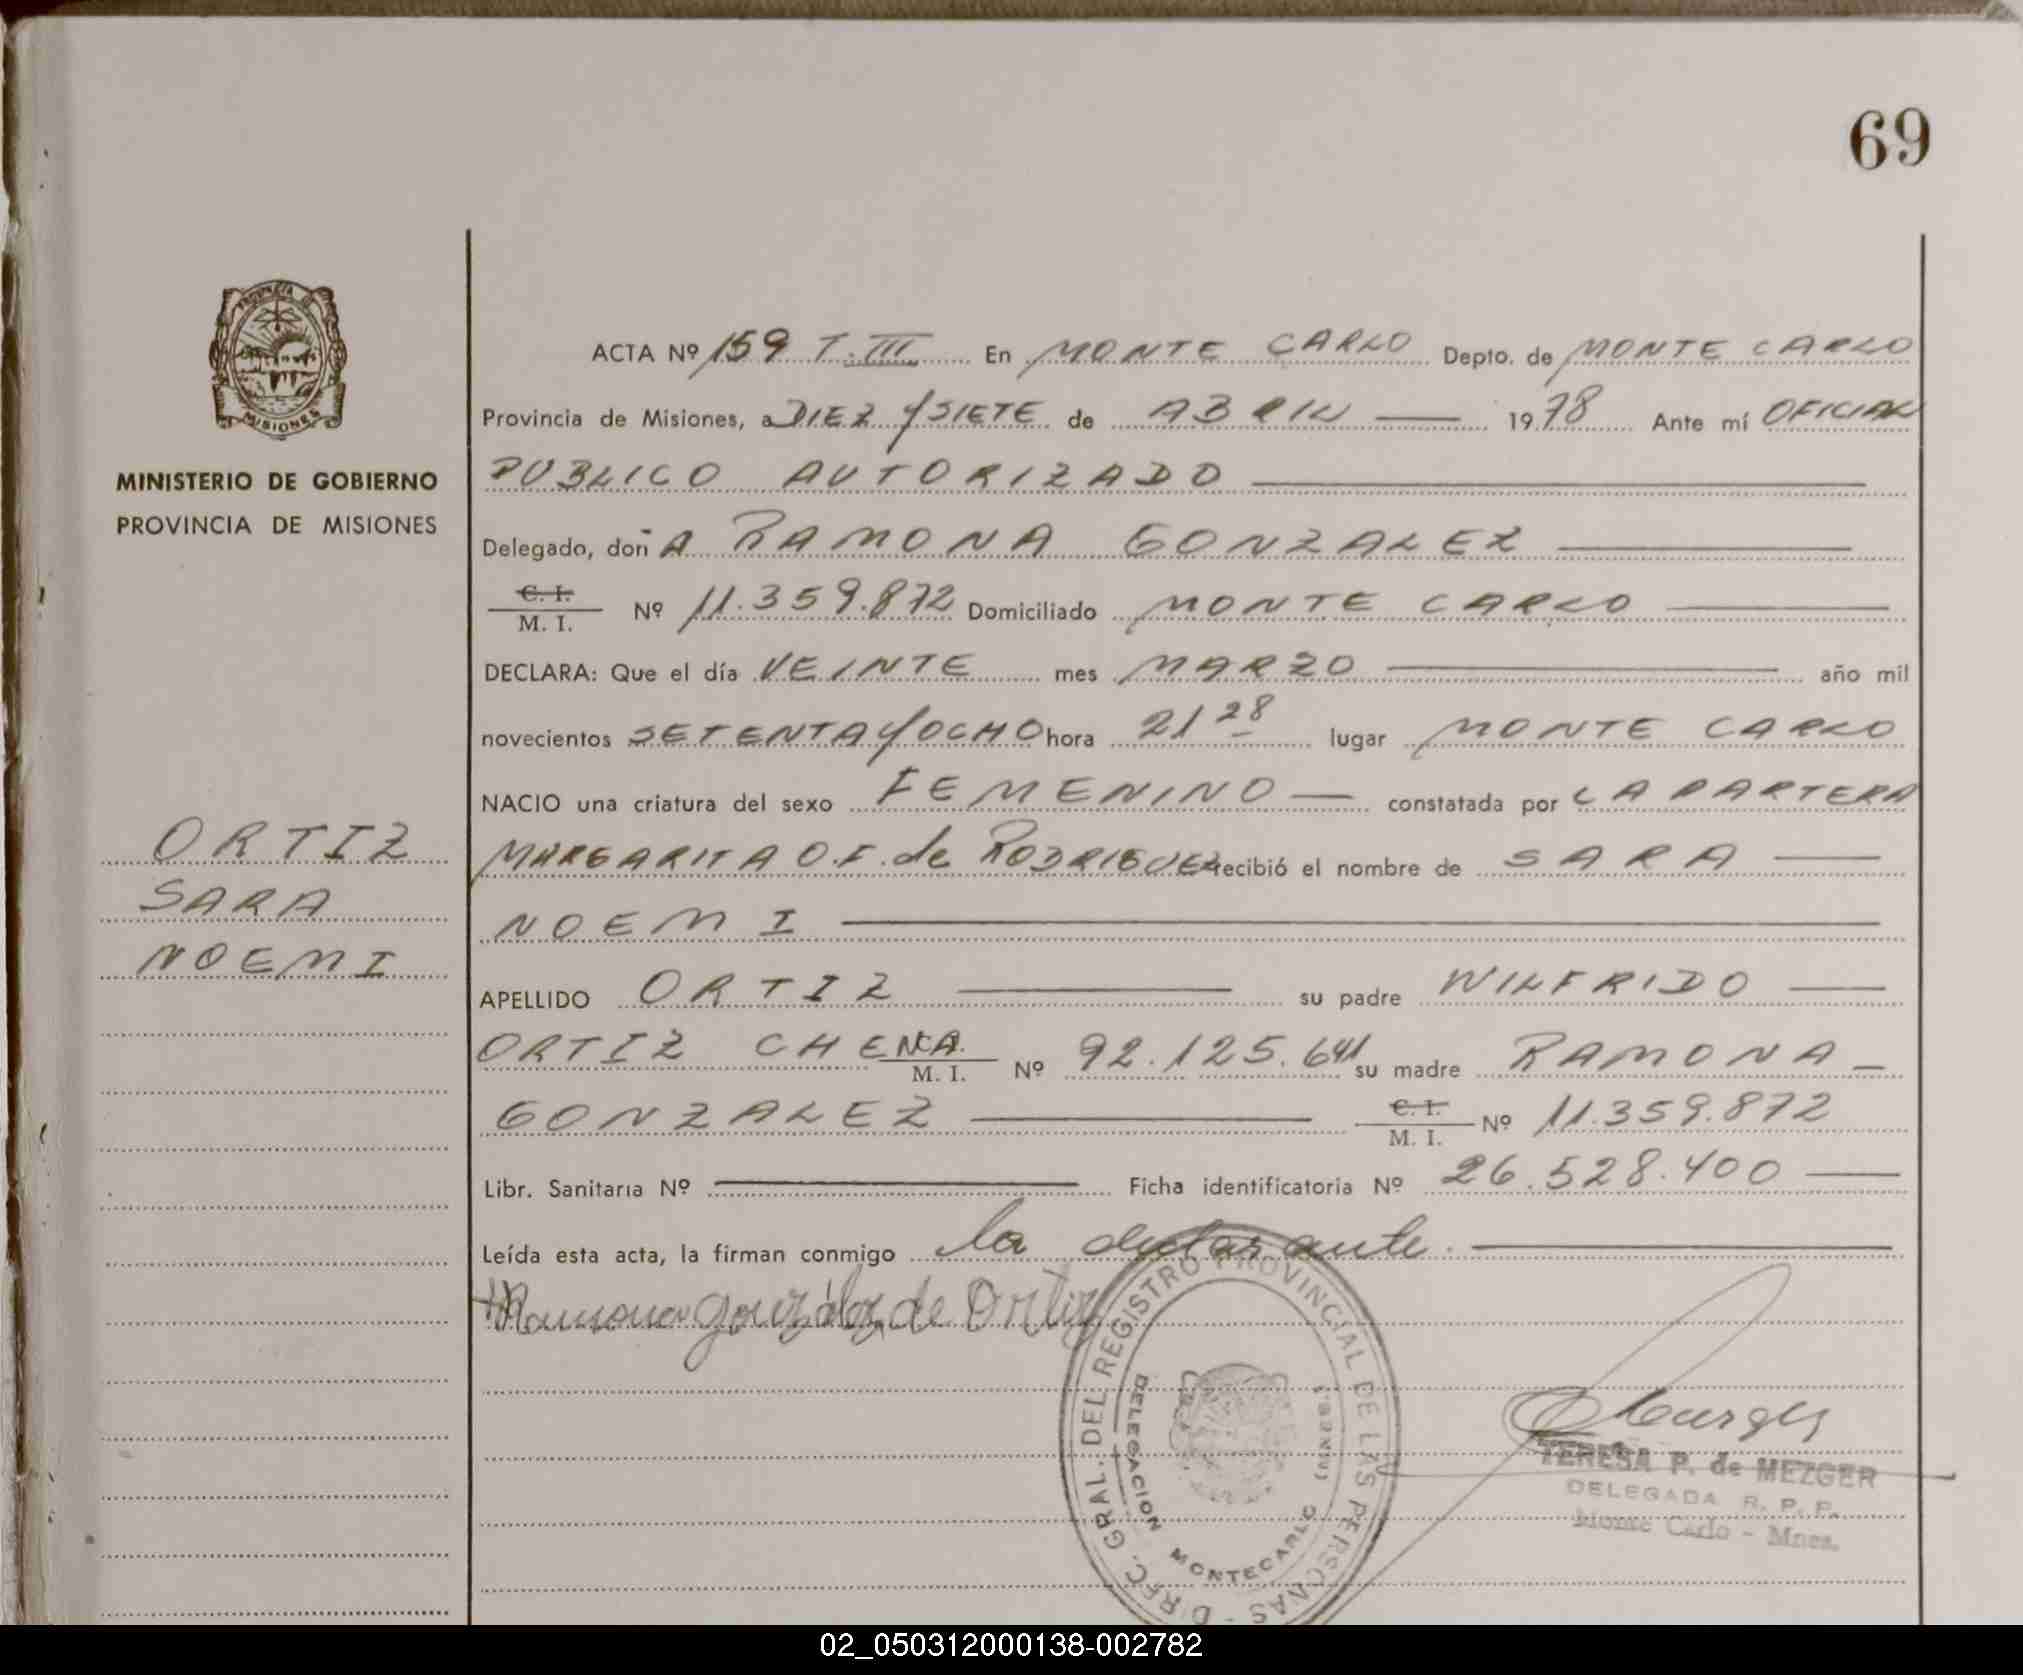 69
PROVINCIA DE
MISIONES
MINISTERIO DE GOBIERNO
PROVINCIA DE MISIONES
ORTIZ
SARA
NOEMI
ACTA Nº 159 T. III En MONTE CARLO Depto. de MONTE CARLO
Provincia de Misiones, a DIEZ y SIETE de ABRIL — 1978 Ante mí OFICIAL
PUBLICO AUTORIZADO —
Delegado, doñA RAMONA GONZALEZ —
C. I.
M. I. Nº 11.359.872 Domiciliado MONTE CARLO —
DECLARA: Que el día VEINTE mes MARZO — año mil
novecientos SETENTA y OCHO hora 21 28 lugar MONTE CARLO
NACIO una criatura del sexo FEMENINO — constatada por LA PARTERA
MARGARITA O.F. de RODRIGUEZ recibió el nombre de SARA —
NOEMI —
APELLIDO ORTIZ — su padre WILFRIDO —
ORTIZ CHENA C.I.
M. I. Nº 92.125.641 su madre RAMONA —
GONZALEZ — C. I.
M. I. Nº 11.359.872
Libr. Sanitaria Nº — Ficha identificatoria Nº 26.528.400 —
Leída esta acta, la firman conmigo la declarante. —
Ramona González de Ortiz
DIREC. GRAL. DEL REGISTRO PROVINCIAL DE LAS PERSONAS -
DELEGACION MONTECARLO (MNES.)
TERESA P. de MEZGER
DELEGADA R. P. P.
Monte Carlo - Mnes.
02_050312000138-002782